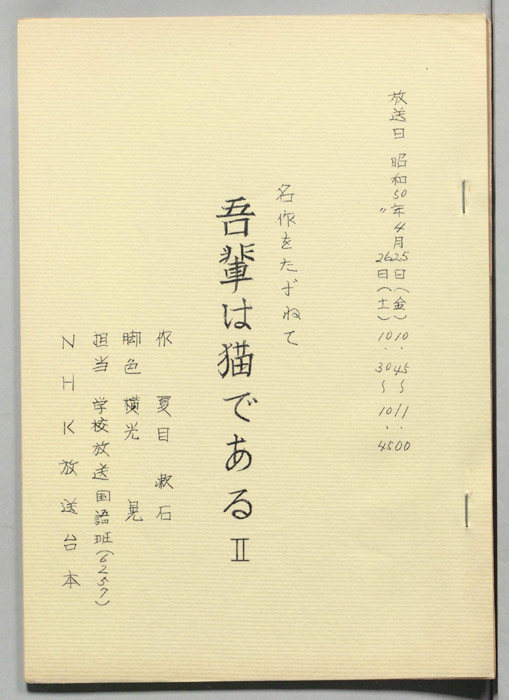 放送日 昭和50年4月25日(金)10:45〜11:00
〃 26日(土)10:30〜10:45
名作をたずねて
吾輩は猫であるⅡ
作 夏目漱石
脚色 横光晃
担当 学校放送国語班(6257)
NHK放送台本